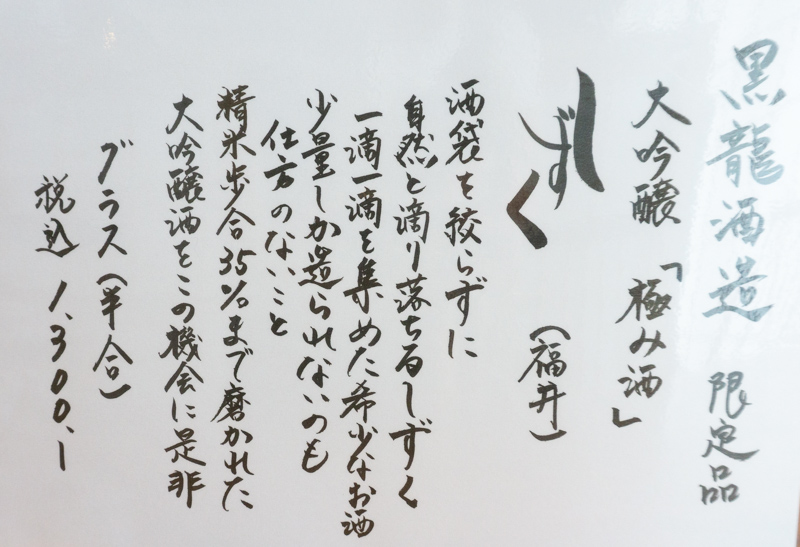 黒龍酒造 限定品
大吟醸「極み酒」
しずく(福井)
酒袋を絞らずに
自然と滴り落ちるしずく
一滴一滴を集めた希少なお酒
少量しか造られないのも
仕方のないこと
精米歩合35%まで磨かれた
大吟醸酒をこの機会に是非
グラス(半合)
税込 1,300.-